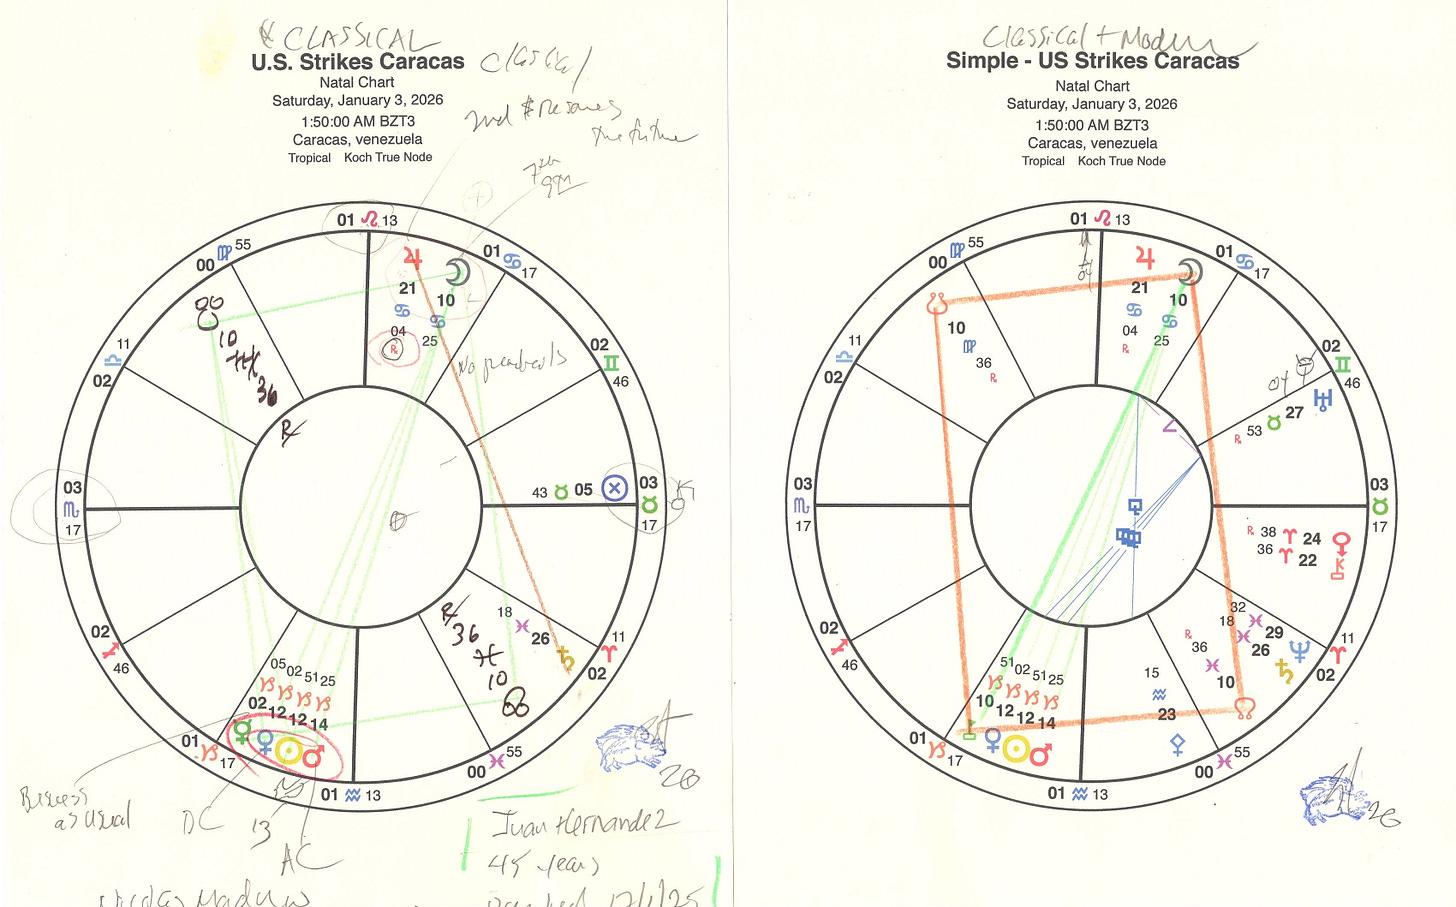 CLASSICAL
U.S. Strikes Caracas
Classical
Natal Chart
Saturday, January 3, 2026
1:50:00 AM BZT3
Caracas, venezuela
Tropical Koch True Node
2nd $
the future
7th
01 ♌ 13
♍ 55
00
01 ♋ 17
♃
☽
21
10
♋
♋
04
25
℞
10
36
℞
11
♎
02
02
♊
46
03
♏
17
43 ♉ 05 ⊗
03
♉
17
18
♓ 26
♄
11
♈
02
℞
36
♓
10
02
♐
46
05 02 51 25
♑ ♑ ♑ ♑
02 12 12 14
☿ ♀ ☉ ♂
01
♑ 17
00 ♓ 55
01 ♒ 13
as usual
DC
13
AC
26
Juan Hernandez
45 years
Nicolas Maduro
Classical + Modern
Simple - US Strikes Caracas
Natal Chart
Saturday, January 3, 2026
1:50:00 AM BZT3
Caracas, venezuela
Tropical Koch True Node
01 ♌ 13
♍ 55
00
01 ♋ 17
♃
☽
21
10
♋
♋
04
25
℞
☊
10
♍
36
℞
11
♎
02
02
♊
46
04
♅
27
♉
53
℞
03
♏
17
03
♉
17
℞ 38 ♈ 24
36 ♈ 22
32
18 ♓ 29 ♆
♓ 26 ♄
℞
36
♓
10
☋
11
♈
02
15
♒
23
02
♐
46
51 02 51 25
♑ ♑ ♑ ♑
10 12 12 14
♀ ☉ ♂
01
♑ 17
00 ♓ 55
01 ♒ 13
26